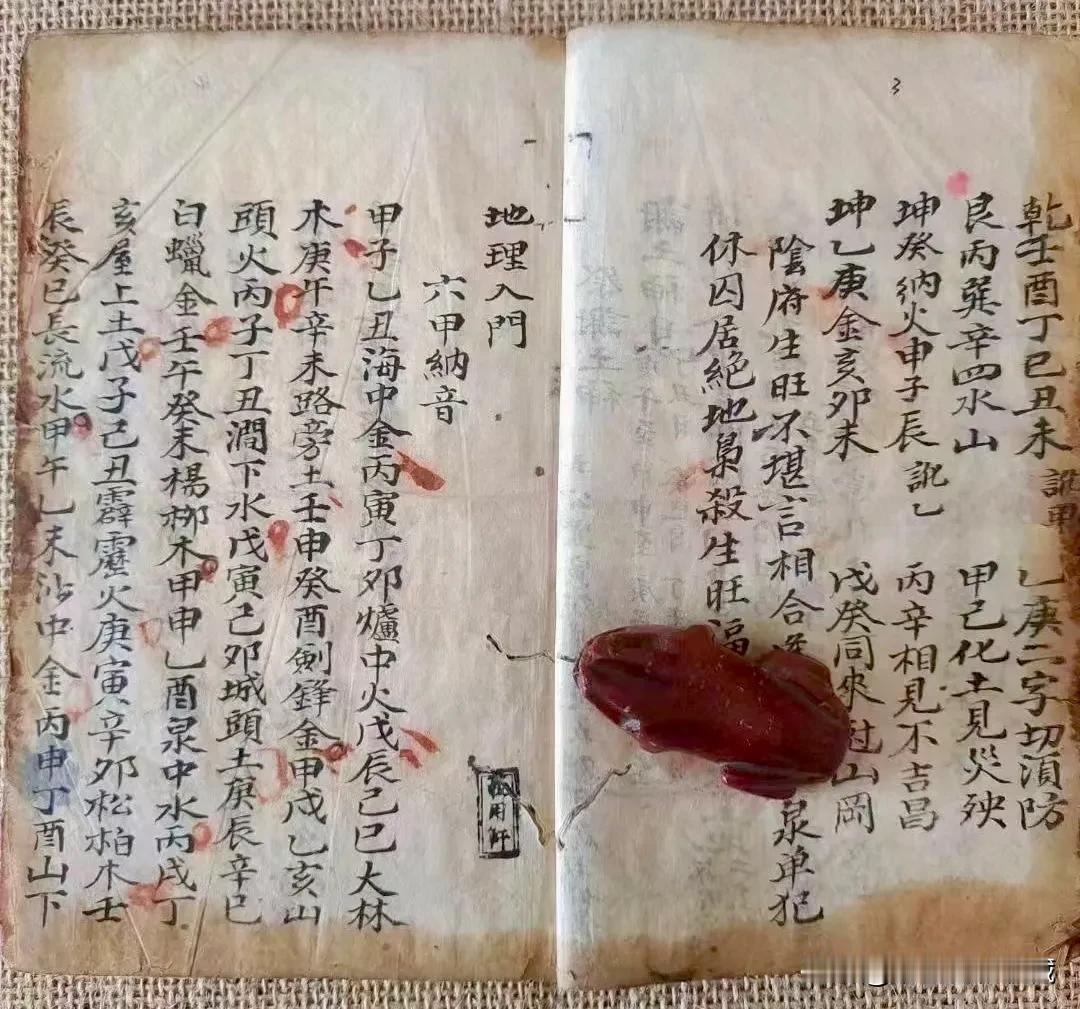 3
乾壬酉丁巳丑未 訛甲 乙庚二字切須防
艮丙巽辛四水山 甲己化土見災殃
坤癸納火申子辰 訛乙 丙辛相見不吉昌
坤乙庚金亥卯未 戊癸同來过山岡
陰府生旺不堪言相合 泉单犯
休囚居絶地梟殺生旺福
地理入門
六甲納音
甲子乙丑海中金丙寅丁卯爐中火戊辰己巳大林
木庚午辛未路旁土壬申癸酉劍鋒金甲戌乙亥山
頭火丙子丁丑澗下水戊寅己卯城頭土庚辰辛巳
白蠟金壬午癸未楊柳木甲申乙酉泉中水丙戌丁
亥屋上土戊子己丑霹靂火庚寅辛卯松柏木壬
辰癸巳長流水甲午乙未沙中金丙申丁酉山下